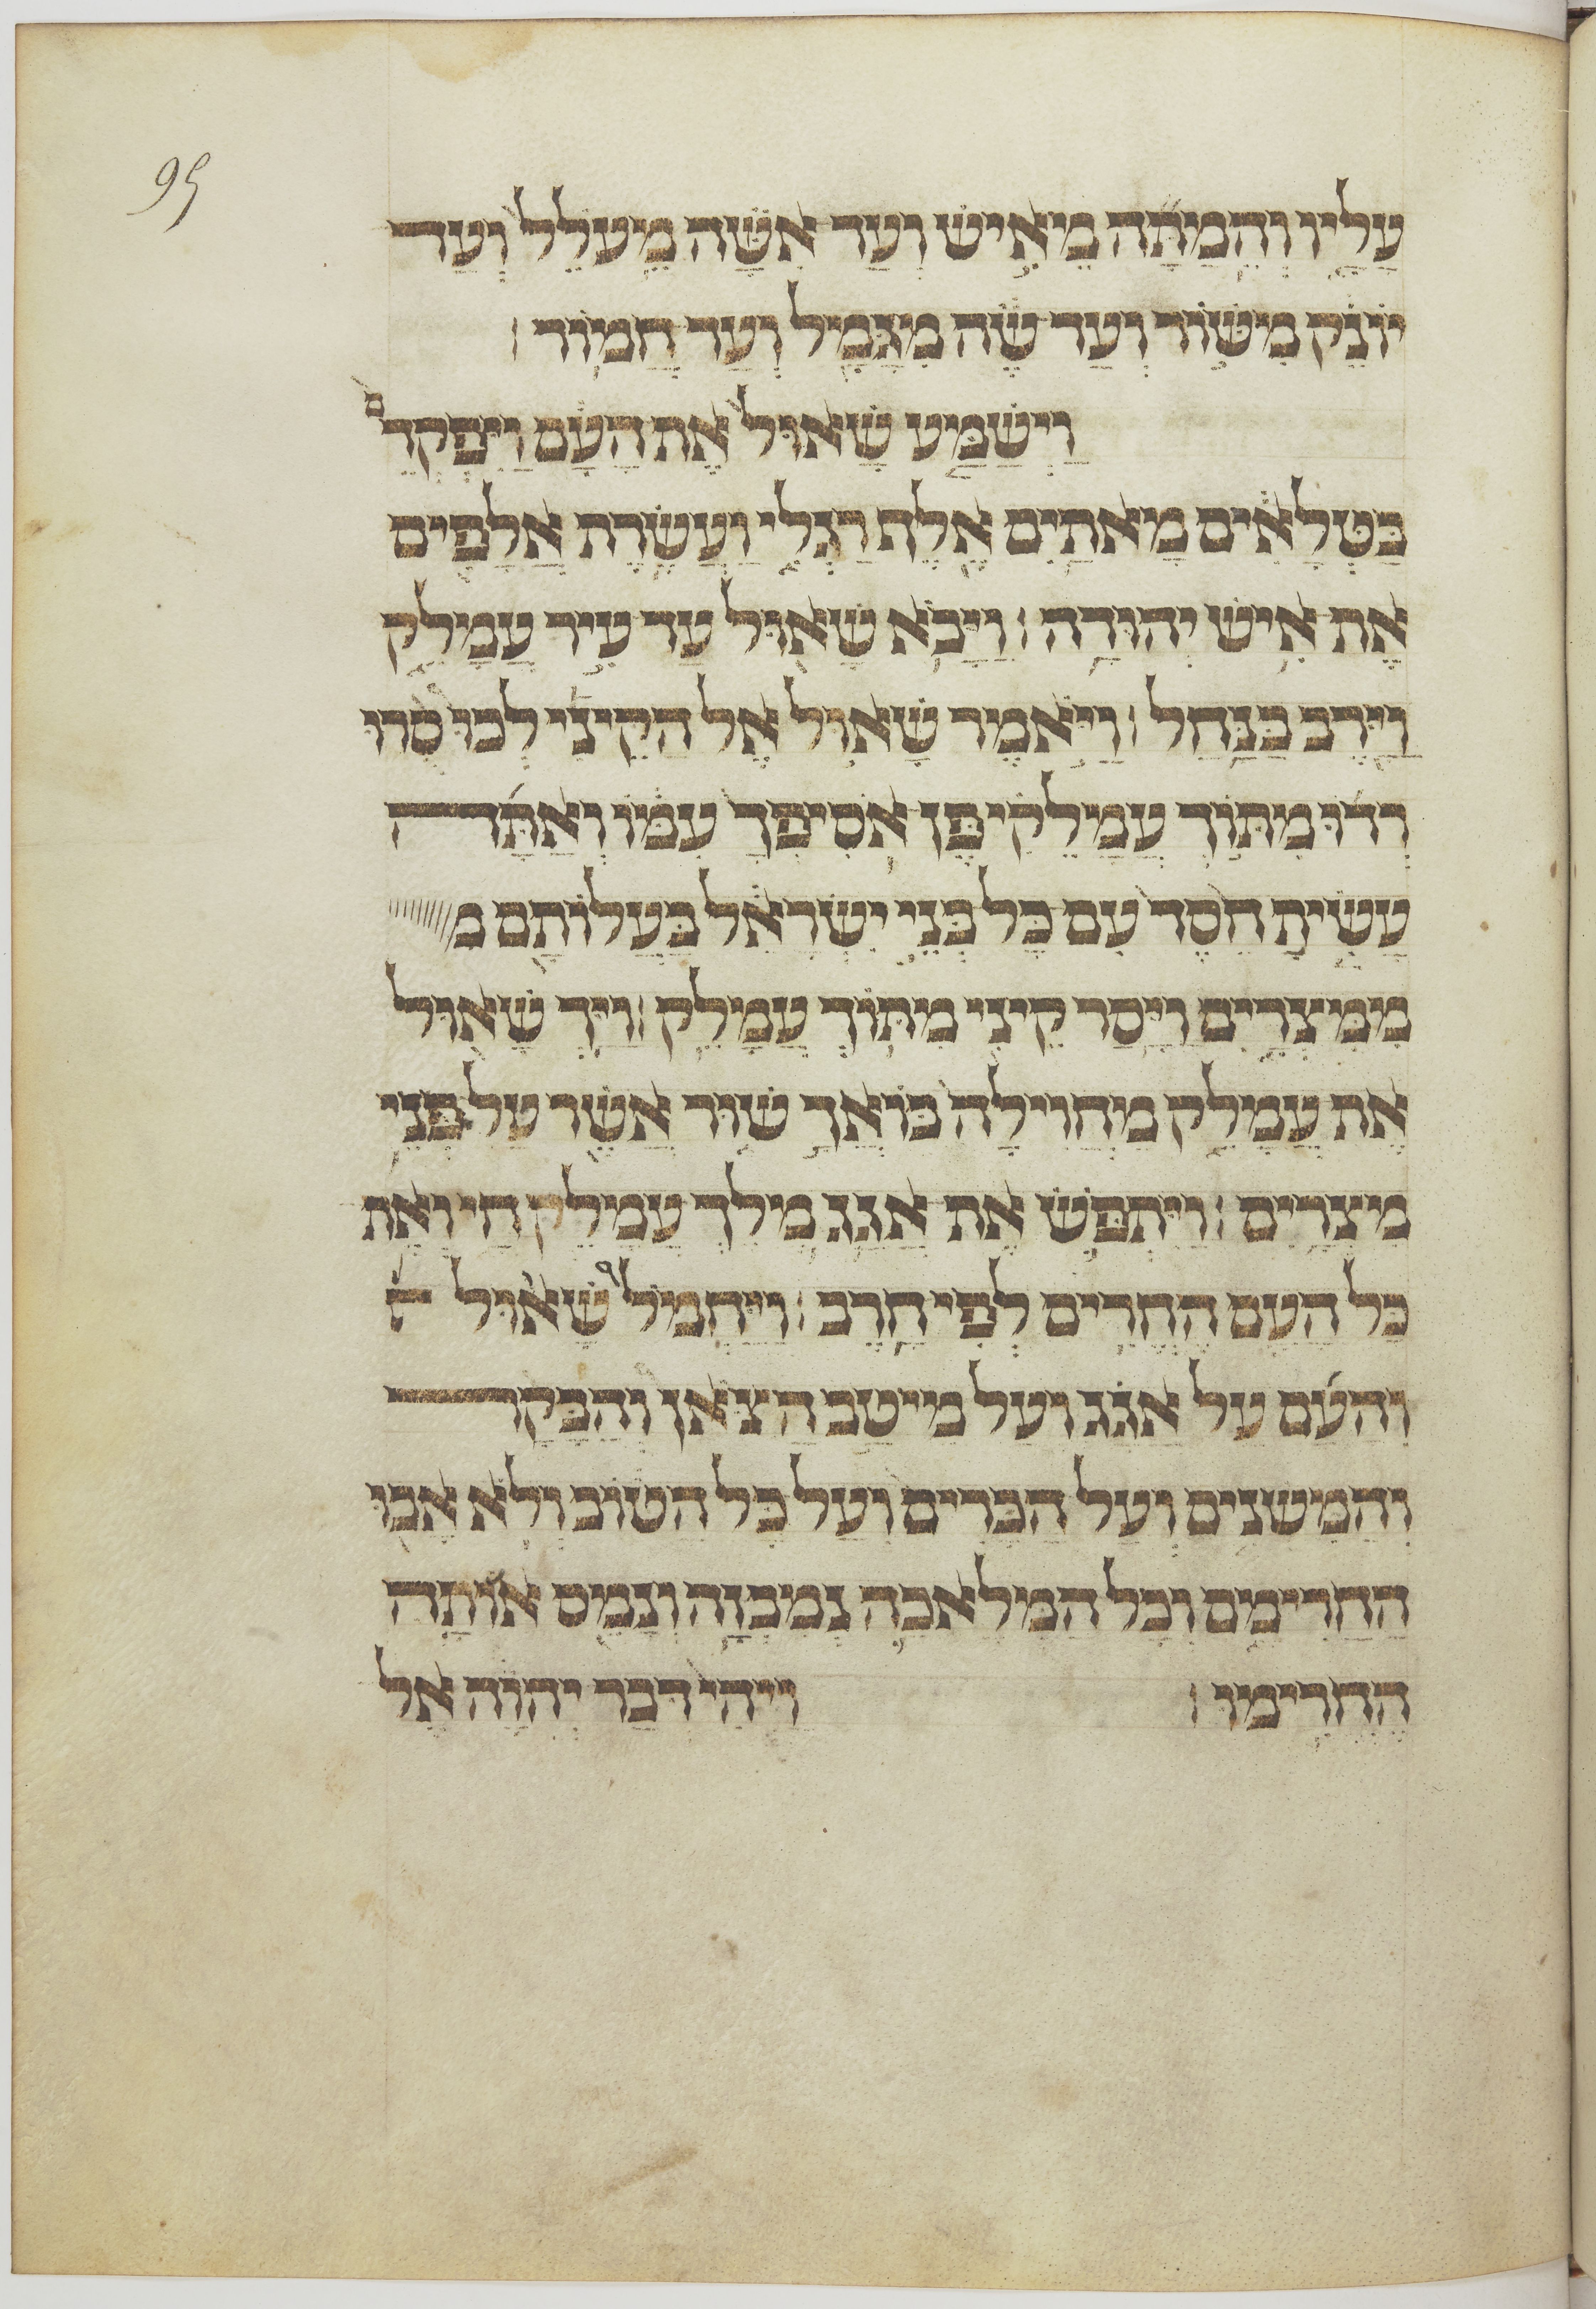 95
עליו והמתה מאיש ועד אשה מעלל ועד
יונק משור ועד שה מגמל ועד חמור ׃
וישמע שאול את העם ויפקדם
בטלאים מאתים אלף רגלי ועשרת אלפים
את איש יהודה ׃ ויבא שאול עד עיר עמלק
וירב בנחל ׃ ויאמר שאול אל הקיני לכו סרו
רדו מתוך עמלקי פן אסיפך עמו ואתה
עשית חסד עם כל בני ישראל בעלותם מ
ממצרים ויסר קיני מתוך עמלק ׃ ויך שאול
את עמלק מחוילה בואך שור אשר על פני
מצרים ׃ ויתפש את אגג מלך עמלק חי ואת
כל העם החרים לפי חרב ׃ ויחמל שאול
והעם על אגג ועל מיטב הצאן והבקר
והמשנים ועל הכרים ועל כל הטוב ולא אבו
החרימם וכל המלאכה נמבזה ונמס אתה
החרימו ׃ ויהי דבר יהוה אל